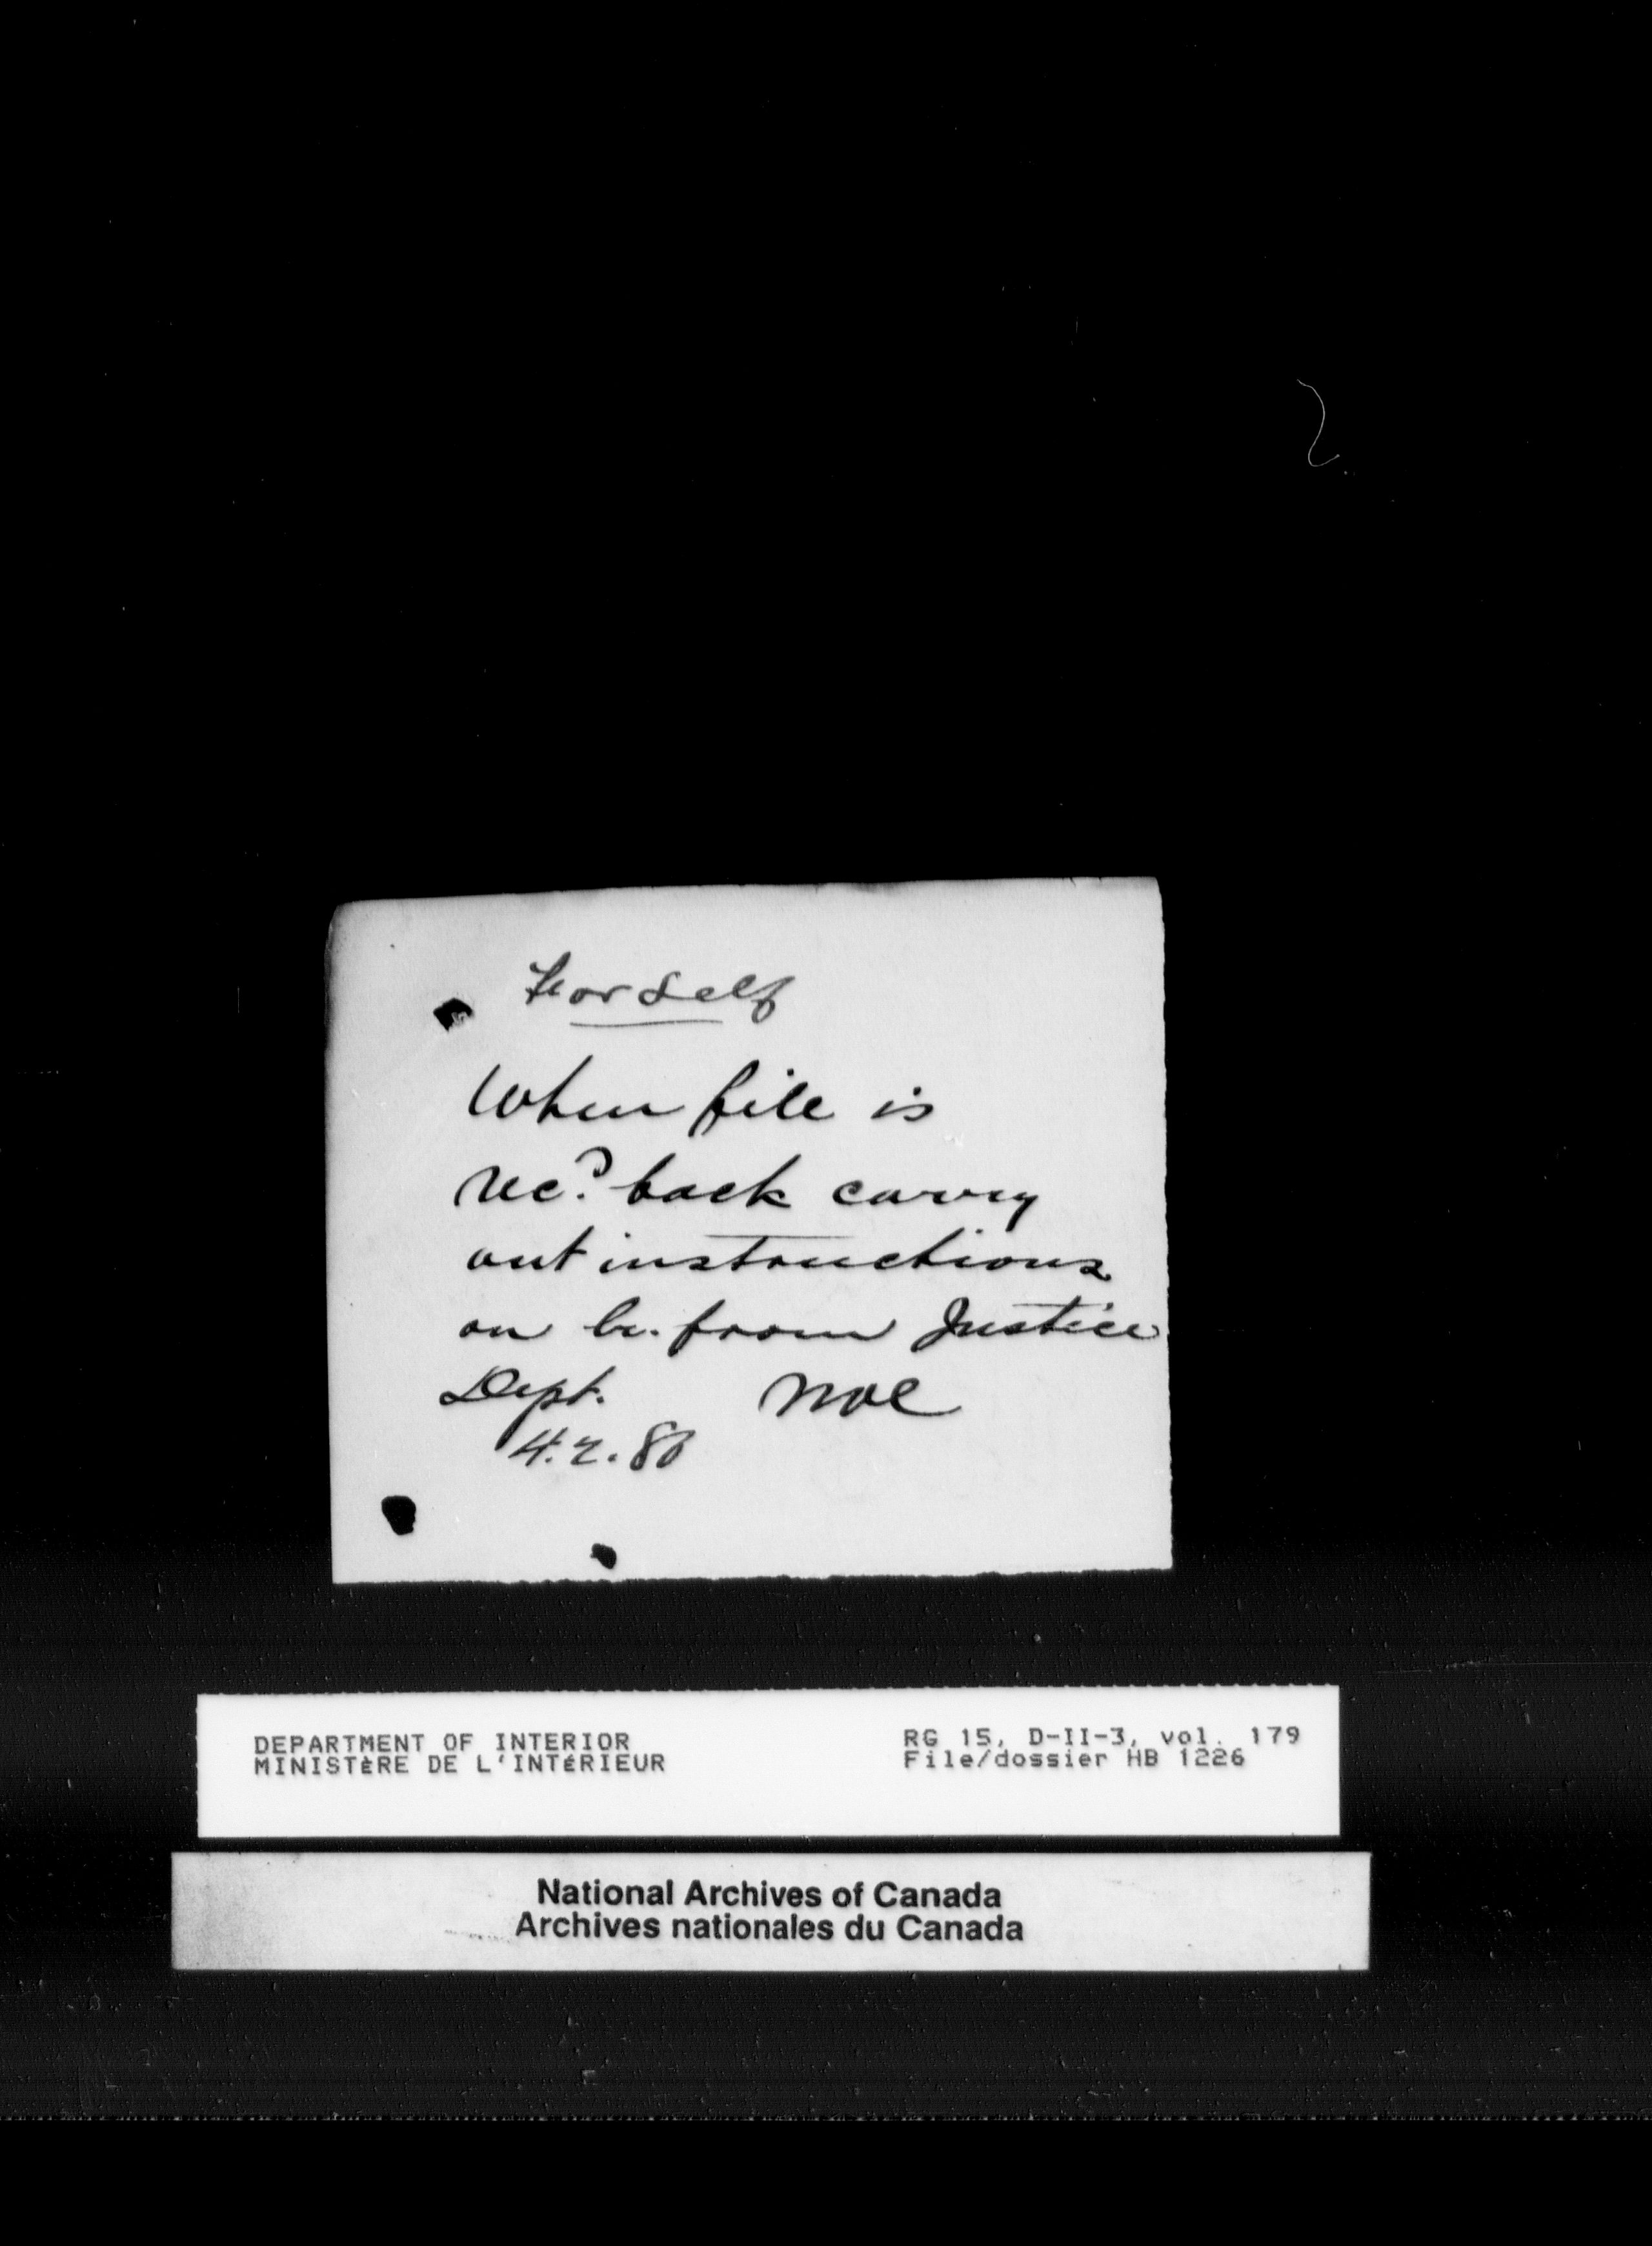 For Self
When file is
rec'd back carry
out instructions
on from Justice
Dept.
DEPARTMENT OF INTERIOR
MINISTÈRE DE L'INTÉRIEUR
RG 15, D-II-3, vol. 179
File/dossier HB 1226
National Archives of Canada
Archives nationales du Canada